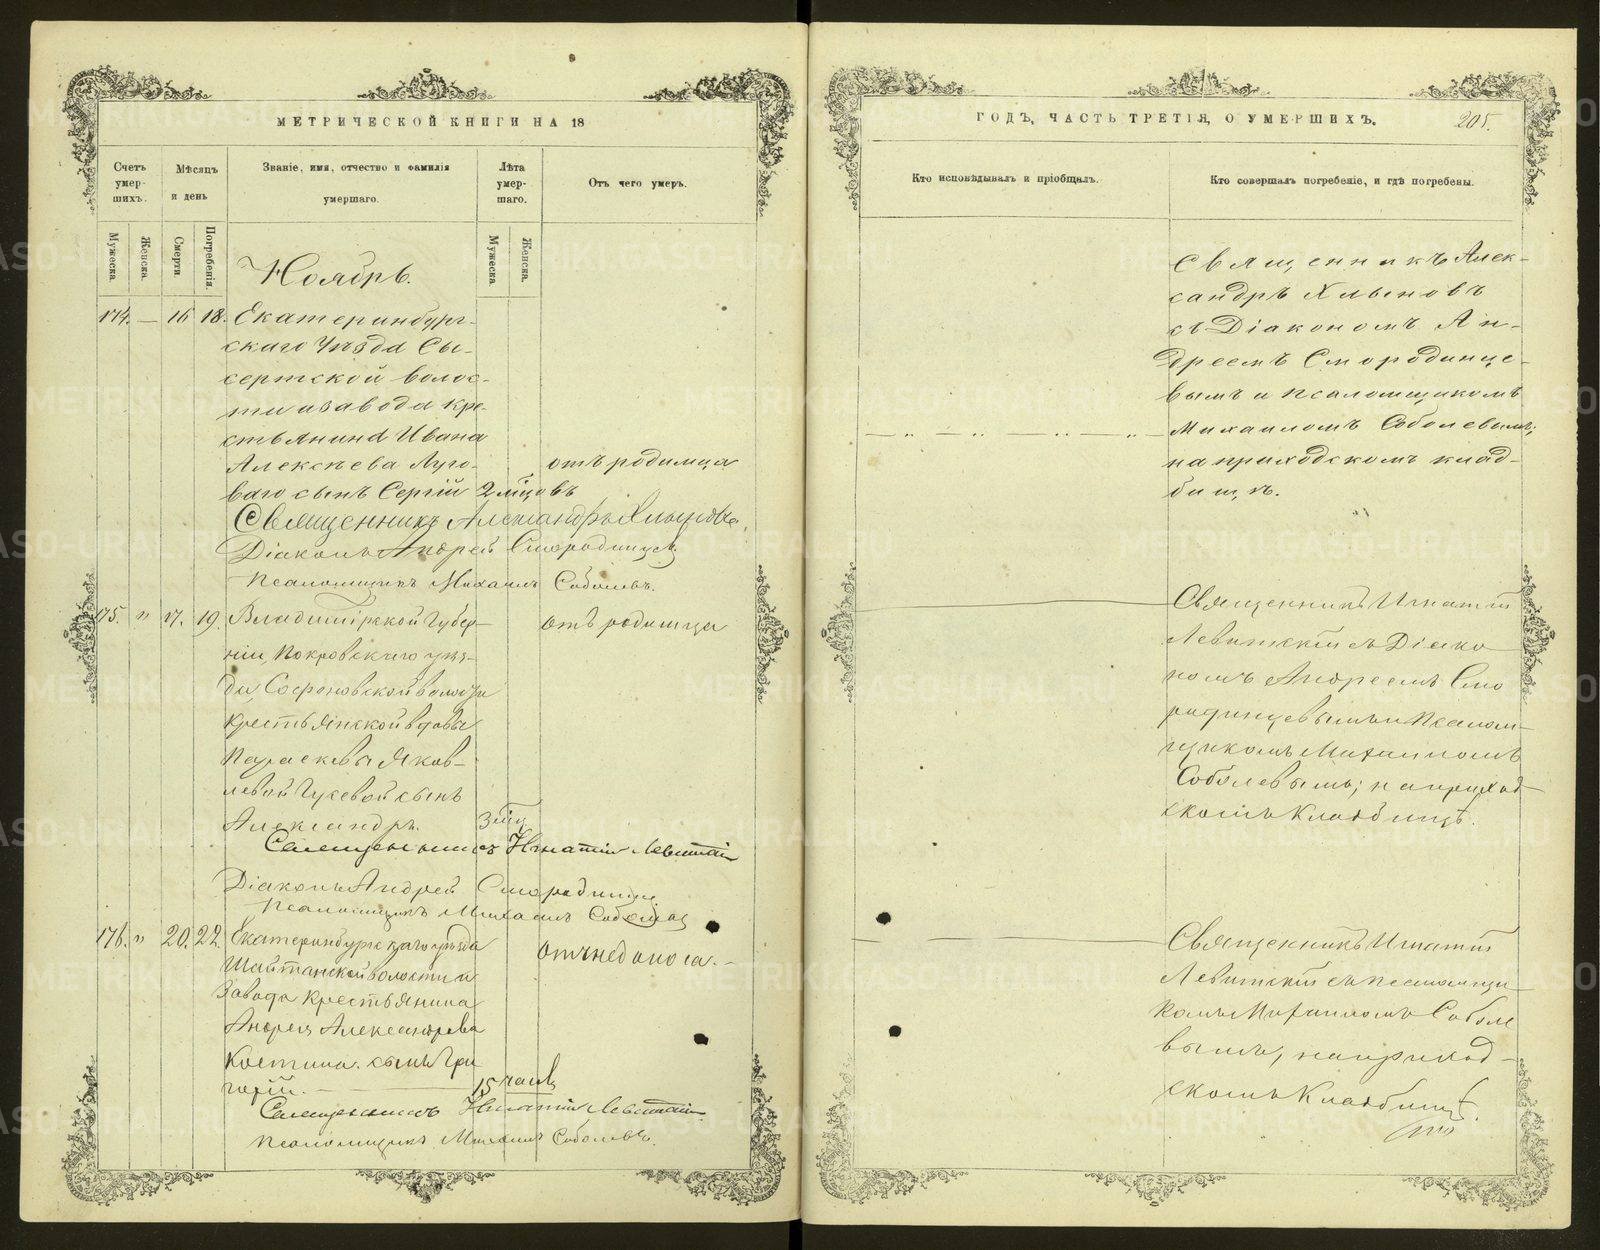 МЕТРИЧЕСКОЙ КНИГИ НА 18
Счетъ умер- шихъ.
Мѣсяцъ и день
Званіе, имя, отчество и фамилія умершаго.
Лѣта умер- шаго.
Отъ чего умеръ.
Мужеска.
Женска.
Смерти.
Погребенія.
Мужеска.
Женска.
Ноябрь.
174. — 16 18. Екатеринбург-
скаго Уѣзда Сы-
сертской волос-
ти и завода кре-
стьянина Ивана
Алексѣева Луго-
отъ родимца
ваго сынъ Сергій 2 мѣсцовъ
Священникъ Александръ Хлыновъ
Діаконъ Андрей Смородинцевъ
Псаломщикъ Михаилъ Соболевъ.
175. " 17. 19. Владимірской Губер-
отъ родимца
ніи, Покровскаго уѣз-
да Софроновской волости
крестьянской вдовы
Параскевы Яков-
левой Гусевой сынъ
Александръ. 3 мѣц.
Священникъ Игнатій Левитскій
Діаконъ Андрей Смородинцев
Псаломщикъ Михаилъ Соболевъ
176. " 20. 22. Екатеринбургскаго уѣзда
отъ недоноса.
Шайтанской волости и
Завода Крестьянина
Андрея Александрова
Костина сынъ Гри
горій. 15 часов
Священникъ Игнатій Левитскій
Псаломщикъ Михаилъ Соболевъ.
ГОДЪ, ЧАСТЬ ТРЕТІЯ, О УМЕРШИХЪ.
205.
Кто исповѣдывалъ и пріобщалъ.
Кто совершалъ погребеніе, и гдѣ погребены.
Священникъ Алек-
сандръ Хлыновъ
съ Діакономъ Ан-
дреемъ Смородинце-
вымъ и псаломщикомъ
— " — " — — " — Михаиломъ Соболевымъ;
на приходскомъ клад-
бищѣ.
Священникъ Игнатій
Левитскій съ Діако
номъ Андреемъ Смо
родинцевымъ и Псалом-
щикомъ Михаиломъ
Соболевымъ; на приход
скомъ Кладбищѣ.
Священникъ Игнатій
Левитскій съ псаломщи
комъ Михаиломъ Собол
вымъ, на приход-
скомъ Кладбищѣ.
METRIKI.GASO-URAL.RU